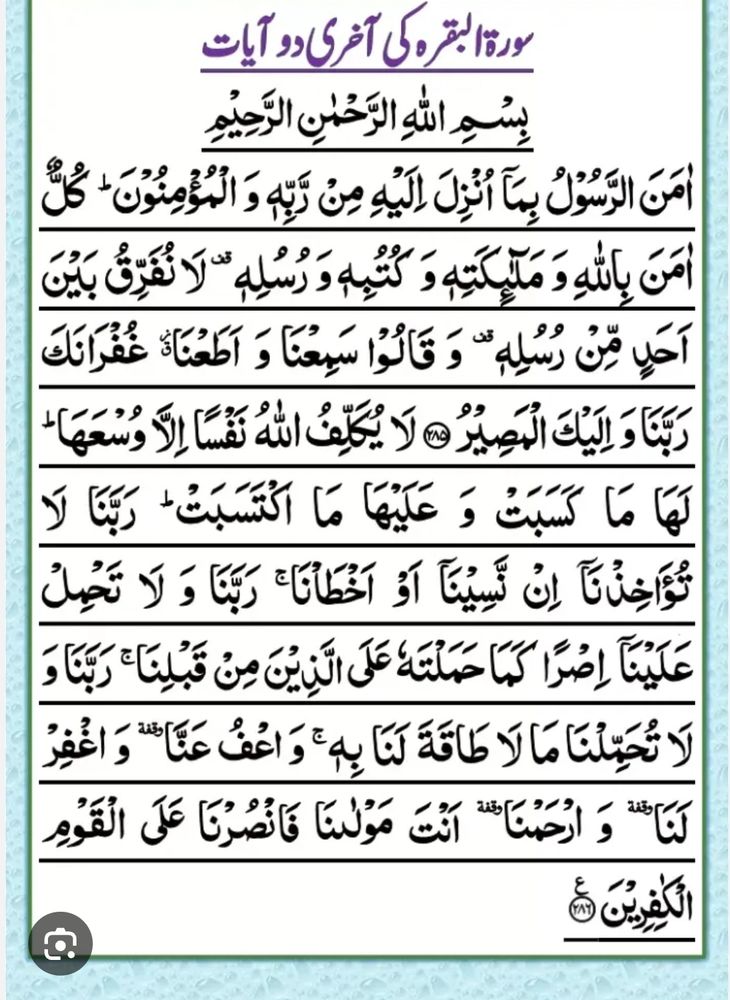 سورۃ البقرہ کی آخری دو آیات
بِسْمِ اللهِ الرَّحْمٰنِ الرَّحِيْمِ
اٰمَنَ الرَّسُوْلُ بِمَآ اُنْزِلَ اِلَيْهِ مِنْ رَّبِّهٖ وَ الْمُؤْمِنُوْنَ ؕ كُلٌّ
اٰمَنَ بِاللهِ وَ مَلٰٓئِكَتِهٖ وَ كُتُبِهٖ وَ رُسُلِهٖ قف لَا نُفَرِّقُ بَيْنَ
اَحَدٍ مِّنْ رُّسُلِهٖ قف وَ قَالُوْا سَمِعْنَا وَ اَطَعْنَا ق غُفْرَانَكَ
رَبَّنَا وَ اِلَيْكَ الْمَصِيْرُ ﴿۲۸۵﴾ لَا يُكَلِّفُ اللهُ نَفْسًا اِلَّا وُسْعَهَا ؕ
لَهَا مَا كَسَبَتْ وَ عَلَيْهَا مَا اكْتَسَبَتْ ؕ رَبَّنَا لَا
تُؤَاخِذْنَآ اِنْ نَّسِيْنَآ اَوْ اَخْطَاْنَا ۚ رَبَّنَا وَ لَا تَحْمِلْ
عَلَيْنَآ اِصْرًا كَمَا حَمَلْتَهٗ عَلَى الَّذِيْنَ مِنْ قَبْلِنَا ۚ رَبَّنَا وَ
لَا تُحَمِّلْنَا مَا لَا طَاقَةَ لَنَا بِهٖ ۚ وَ اعْفُ عَنَّا وقفة وَ اغْفِرْ
لَنَا وقفة وَ ارْحَمْنَا وقفة اَنْتَ مَوْلٰىنَا فَانْصُرْنَا عَلَى الْقَوْمِ
الْكٰفِرِيْنَ ﴿۲۸۶﴾ ع